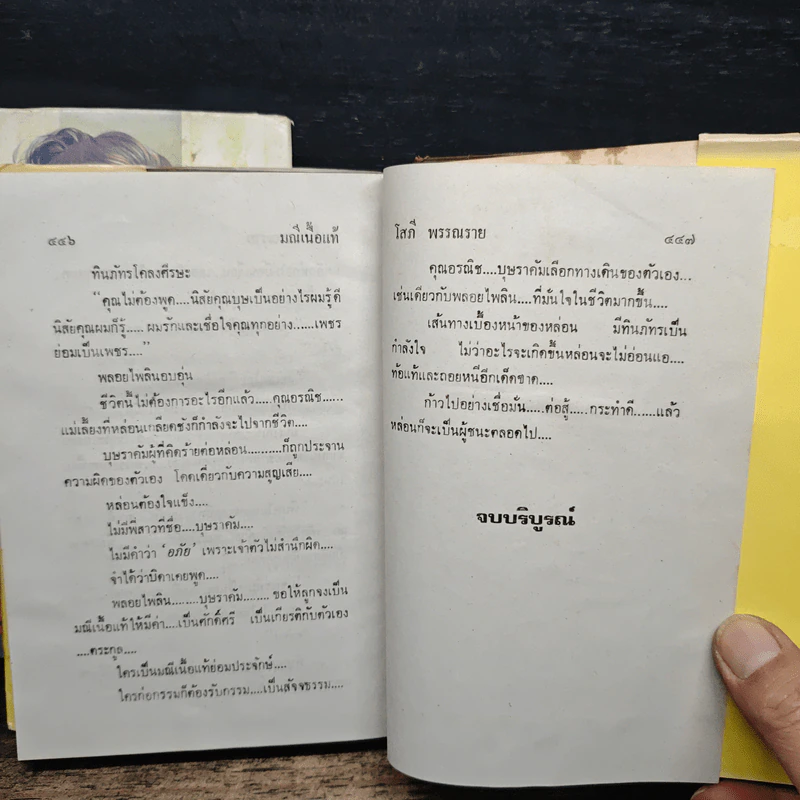 ๔๔๖ มณีเนื้อแท้
ทินภัทรโคลงศีรษะ
"คุณไม่ต้องพูด....นิสัยคุณบุษเป็นอย่างไรผมรู้ดี
นิสัยคุณผมก็รู้.....ผมรักและเชื่อใจคุณทุกอย่าง......เพชร
ย่อมเป็นเพชร...."
พลอยไพลินอบอุ่น
ชีวิตนี้ไม่ต้องการอะไรอีกแล้ว.....คุณอรณิช......
แม่เลี้ยงที่หล่อนเกลียดชังก็กำลังจะไปจากชีวิต....
บุษราคัมผู้ที่คิดร้ายต่อหล่อน..........ก็ถูกประจาน
ความผิดของตัวเอง โดดเดี่ยวกับความสูญเสีย....
หล่อนต้องใจแข็ง....
ไม่มีพี่สาวที่ชื่อ....บุษราคัม....
ไม่มีคำว่า 'อภัย' เพราะเจ้าตัวไม่สำนึกผิด....
จำได้ว่าบิดาเคยพูด....
พลอยไพลิน........บุษราคัม........ขอให้ลูกจงเป็น
มณีเนื้อแท้ให้มีค่า....เป็นศักดิ์ศรี เป็นเกียรติกับตัวเอง
....ตระกูล....
ใครเป็นมณีเนื้อแท้ย่อมประจักษ์....
ใครก่อกรรมก็ต้องรับกรรม.....เป็นสัจจธรรม....
โสภี พรรณราย ๔๔๗
คุณอรณิช....บุษราคัมเลือกทางเดินของตัวเอง...
เช่นเดียวกับพลอยไพลิน....ที่มั่นใจในชีวิตมากขึ้น....
เส้นทางเบื้องหน้าของหล่อน มีทินภัทรเป็น
กำลังใจ ไม่ว่าอะไรจะเกิดขึ้นหล่อนจะไม่อ่อนแอ....
ท้อแท้และถอยหนีอีกเด็ดขาด....
ก้าวไปอย่างเชื่อมั่น.....ต่อสู้.....กระทำดี......แล้ว
หล่อนก็จะเป็นผู้ชนะตลอดไป....
จบบริบูรณ์